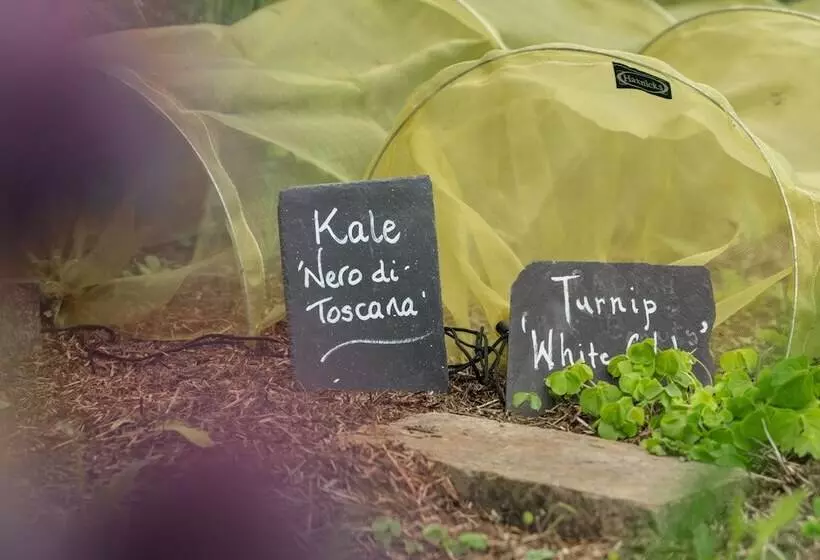 Haxnicks
Kale
'Nero di
Toscana'
Turnip
'White